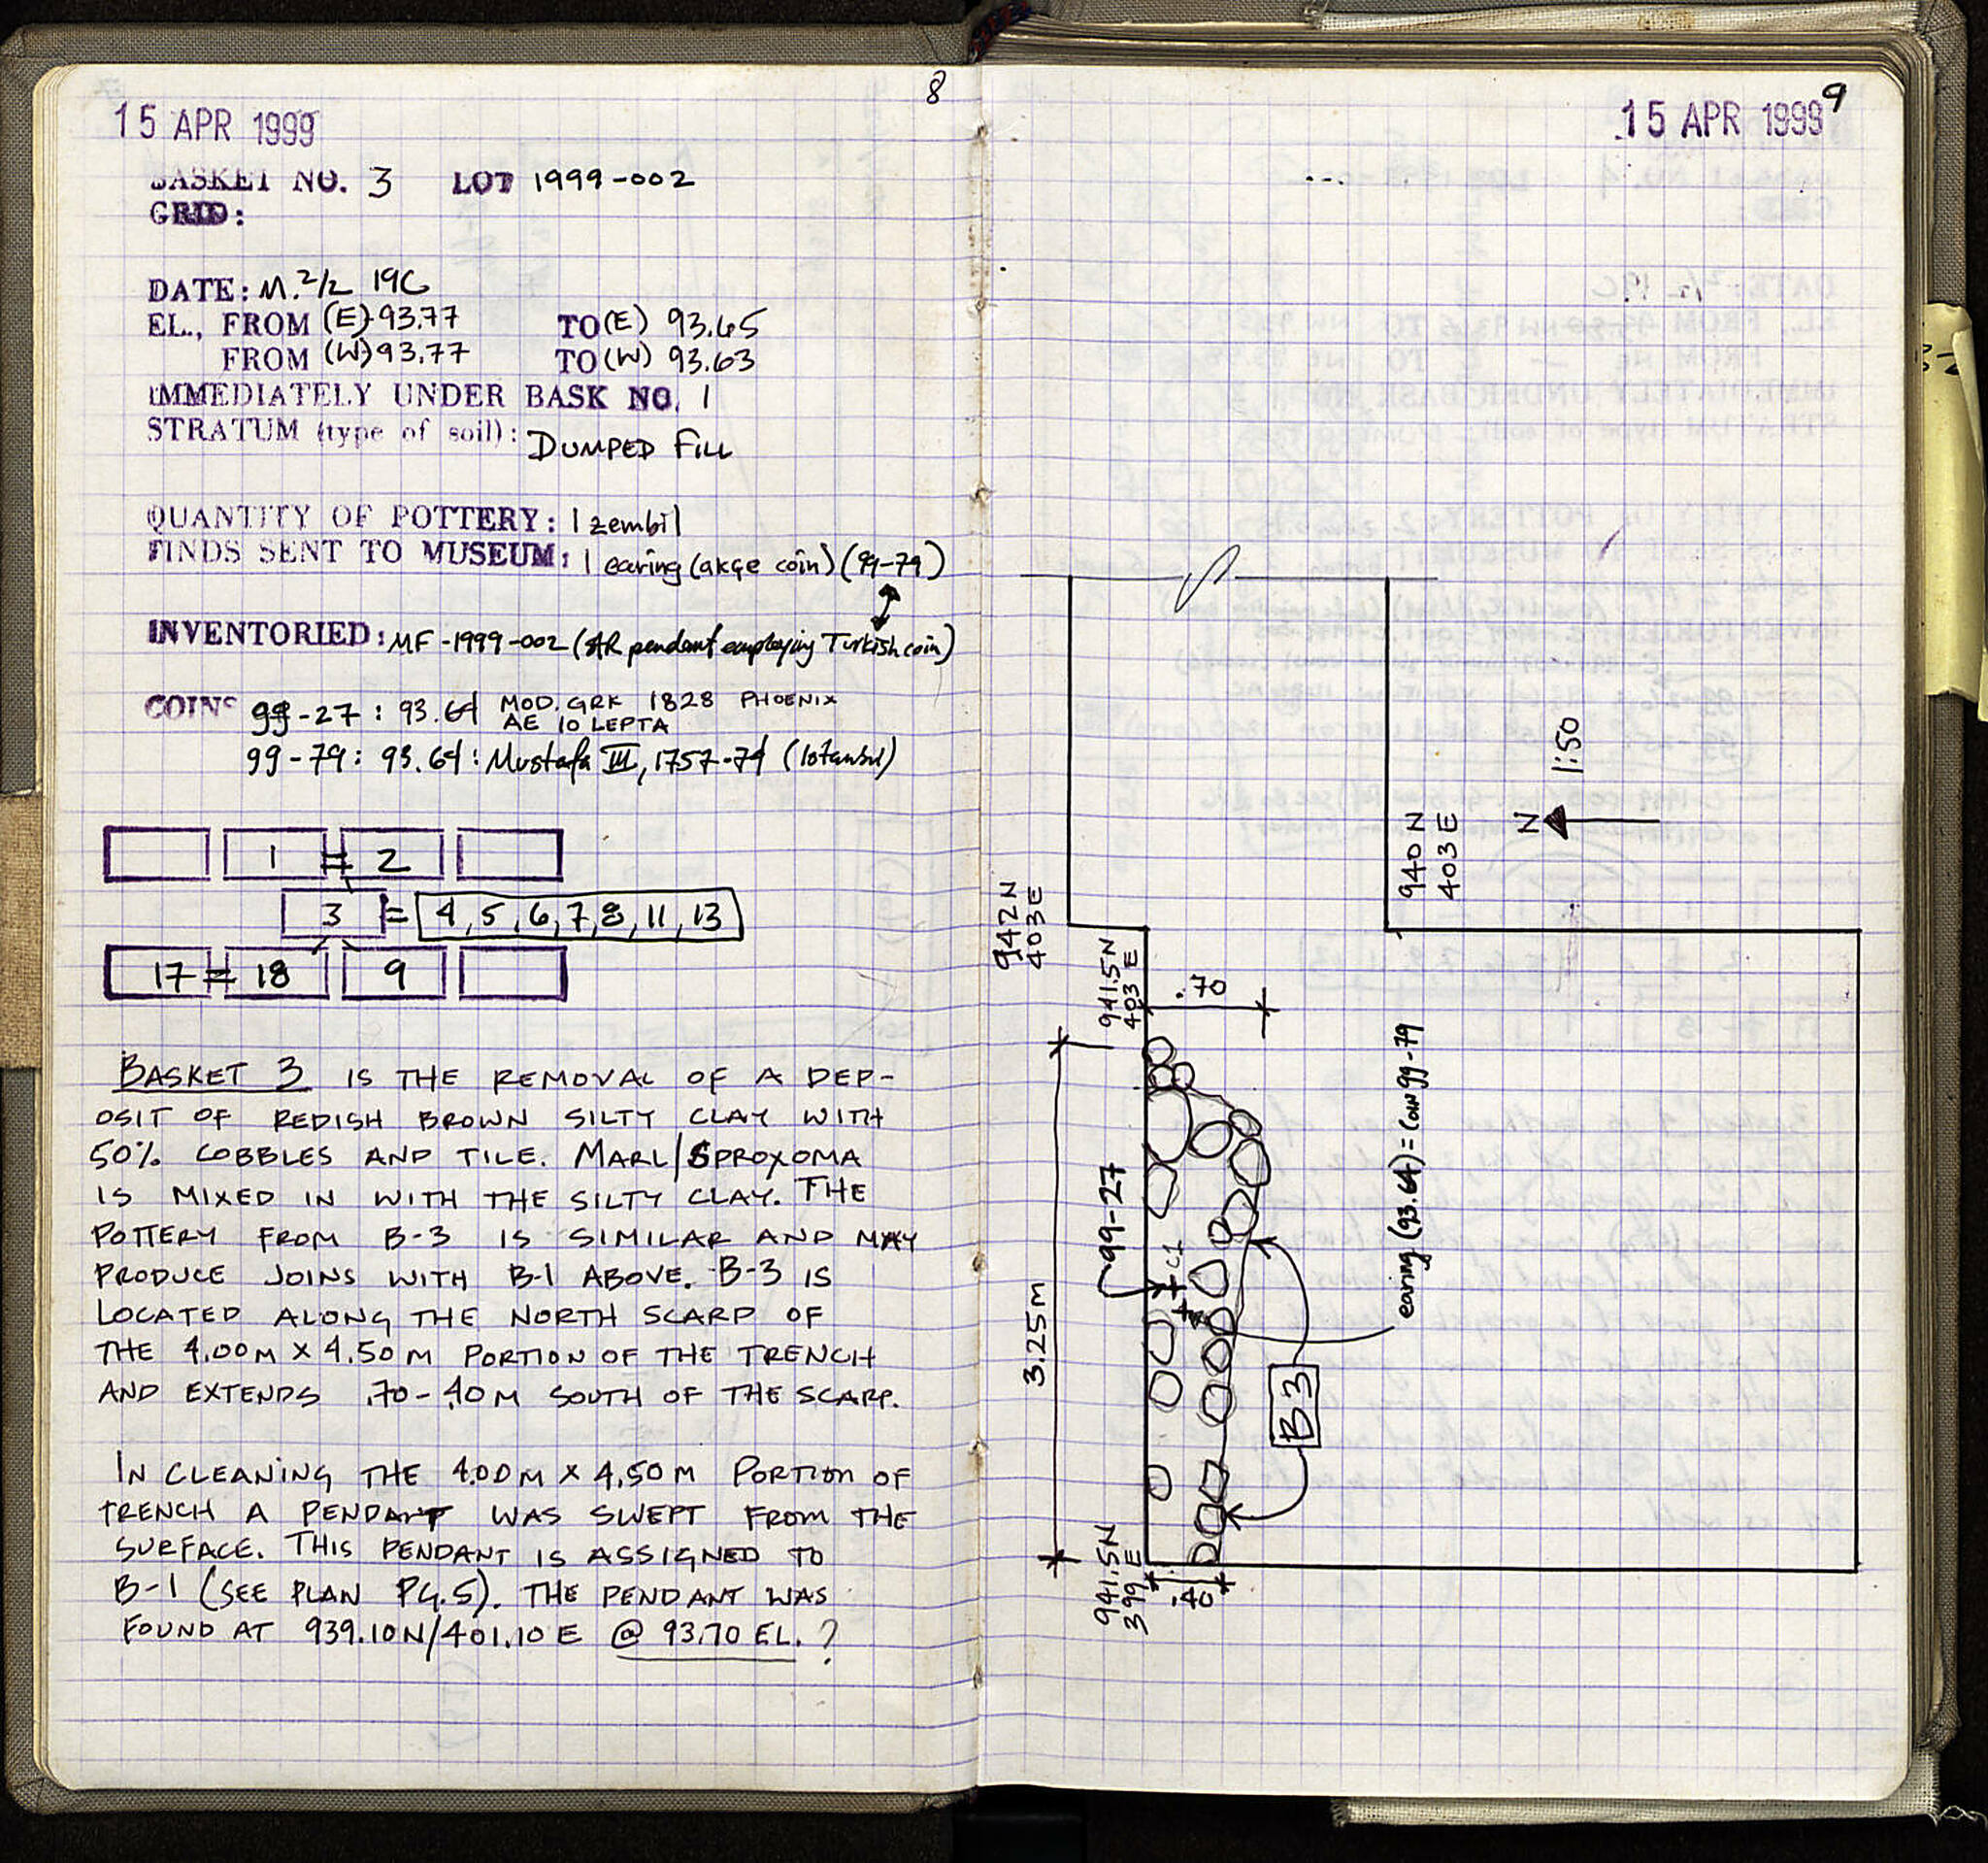 8
15 APR 1999
BASKET NO. 3 LOT 1999-002
GRID:
DATE: M. 2/2 19C
EL., FROM (E) 93.77 TO (E) 93.65
FROM (W) 93.77 TO (W) 93.63
IMMEDIATELY UNDER BASK NO. 1
STRATUM (type of soil): DUMPED FILL
QUANTITY OF POTTERY: 1 zembil
FINDS SENT TO MUSEUM: 1 earing (akçe coin) (99-79)
INVENTORIED: MF-1999-002 (AR pendant employing Turkish coin)
COINS 99-27: 93.64 MOD. GRK 1828 PHOENIX
AE 10 LEPTA
99-79: 93.64: Mustafa III, 1757-74 (Istanbul)
1 = 2
3 = 4, 5, 6, 7, 8, 11, 13
17 = 18 9
BASKET 3 IS THE REMOVAL OF A DEP-
OSIT OF REDISH BROWN SILTY CLAY WITH
50% COBBLES AND TILE. MARL/SPROXOMA
IS MIXED IN WITH THE SILTY CLAY. THE
POTTERY FROM B-3 IS SIMILAR AND MAY
PRODUCE JOINS WITH B-1 ABOVE. B-3 IS
LOCATED ALONG THE NORTH SCARP OF
THE 4.00M X 4.50M PORTION OF THE TRENCH
AND EXTENDS .70-.40M SOUTH OF THE SCARP.
IN CLEANING THE 4.00M X 4.50M PORTION OF
TRENCH A PENDANT WAS SWEPT FROM THE
SURFACE. THIS PENDANT IS ASSIGNED TO
B-1 (SEE PLAN PG. 5). THE PENDANT WAS
FOUND AT 939.10N/401.10E @ 93.70 EL. ?
9
15 APR 1999
1:50
N
940 N
403 E
942 N
403 E
941.5N
403 E
.70
earing (93.64) = coin 99-79
99-27
C1
3.25m
B3
941.5N
399 E
.40